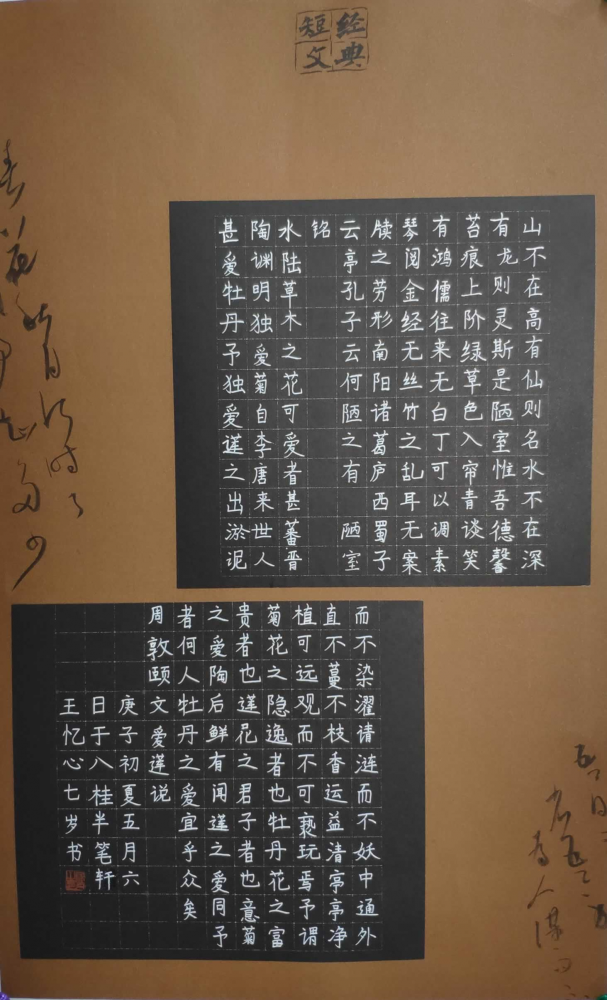 经典
短文
山不在高有仙则名水不在深
有龙则灵斯是陋室惟吾德馨
苔痕上阶绿草色入帘青谈笑
有鸿儒往来无白丁可以调素
琴阅金经无丝竹之乱耳无案
牍之劳形南阳诸葛庐西蜀子
云亭孔子云何陋之有 陋室
铭
水陆草木之花可爱者甚蕃晋
陶渊明独爱菊自李唐来世人
甚爱牡丹予独爱莲之出淤泥
而不染濯请涟而不妖中通外
直不蔓不枝香运益清亭亭净
植可远观而不可亵玩焉予谓
菊花之隐逸者也牡丹花之富
贵者也莲花之君子者也意菊
之爱陶后鲜有闻莲之爱同予
者何人牡丹之爱宜乎众矣
周敦颐文爱莲说
庚子初夏五月六
日于八桂半笔轩
王忆心七岁书